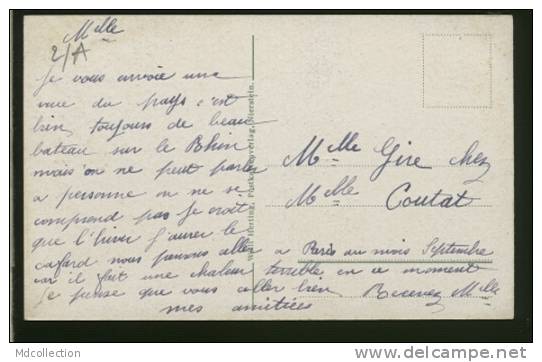 Mlle
2/A
Je vous envoie une
vue du pays c'est
bien toujours de beau
bateau sur le Rhin
mais on ne peut parler
a personne on ne se
comprend pas je croit
que l'hiver j'aurer le
cafard nous pensons aller a Paris au mois Septembre
car il fait une chaleur terrible en ce moment
je pense que vous aller bien Recevez Mlle
mes amitiées
Mlle Gire chez
Mlle Coutat
Mdcollection
http://www.delcampe.net